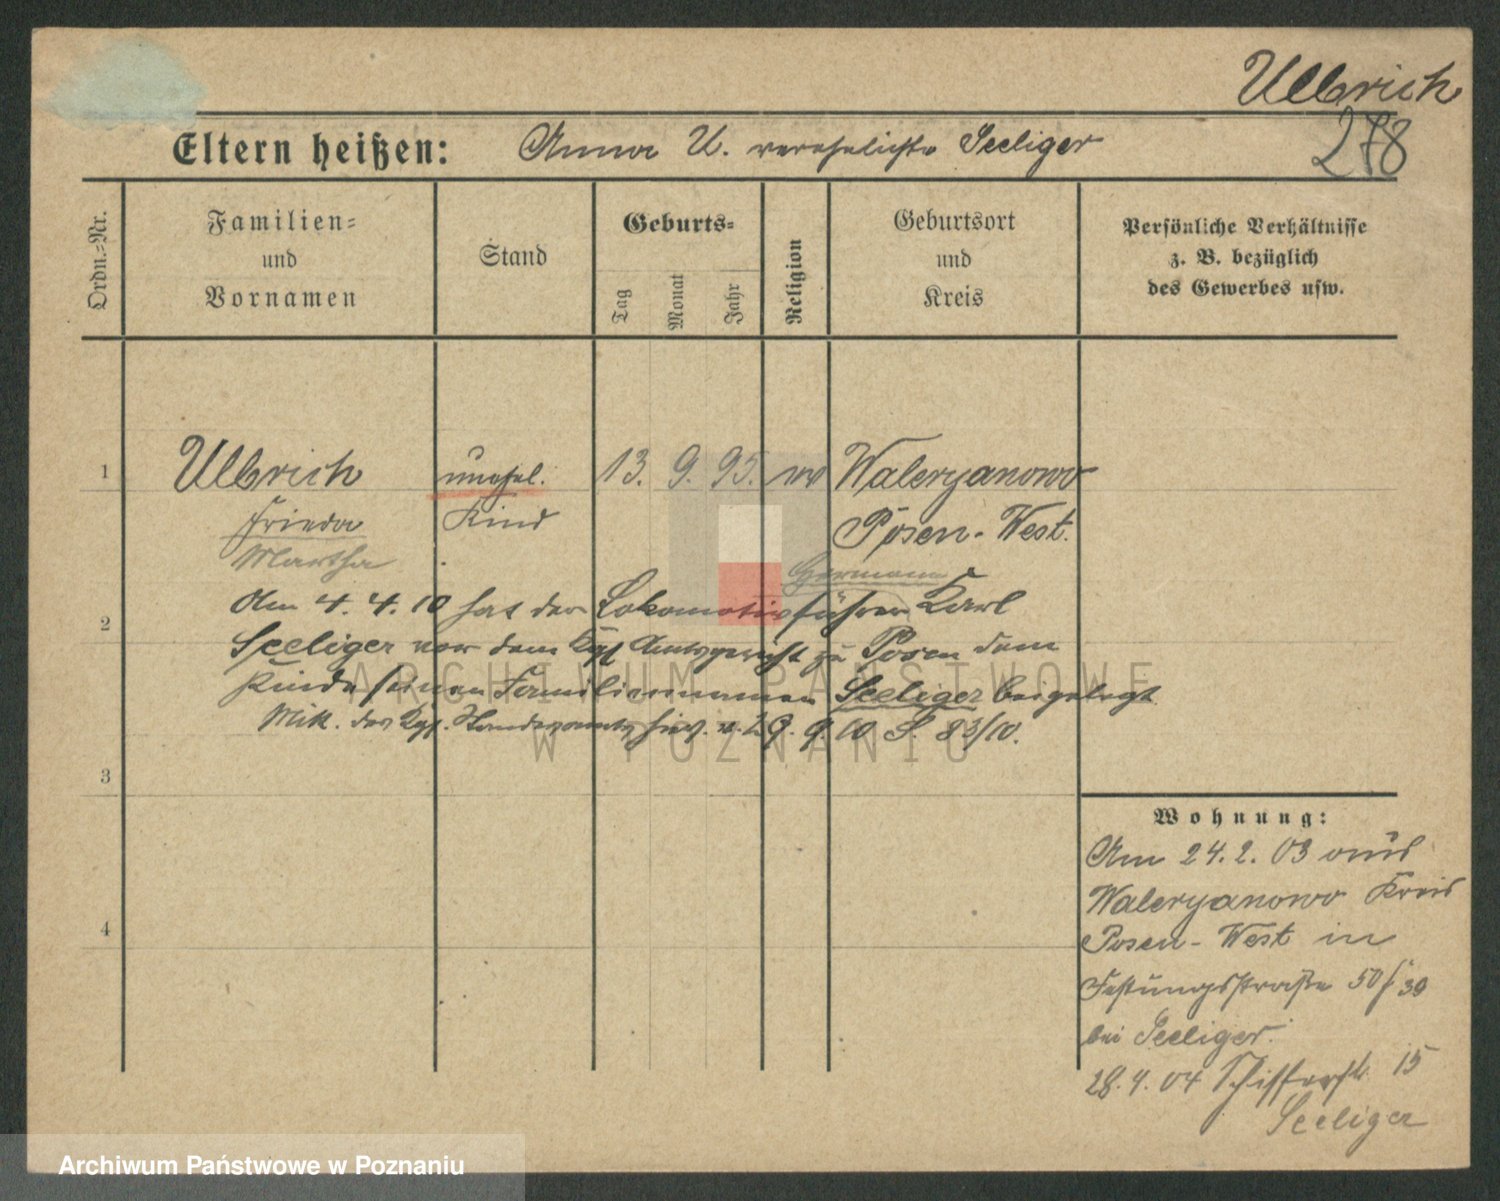 Ullrich
278
Eltern heißen: Anna U. verehelichte Seeliger
Ordn.-Nr.
Familien- und Vornamen
Stand
Geburts-
Tag
Monat
Jahr
Religion
Geburtsort und Kreis
Persönliche Verhältnisse z. B. bezüglich des Gewerbes usw.
1 Ullrich unehel. 13. 9. 95. Waleryanowo
Frieda Kind Posen-West.
Martha
Hermann
2 Am 4. 4. 10 hat der Lokomotivführer Karl
Seeliger vor dem Kgl. Amtsgericht zu Posen dem
Kinde seinen Familiennamen Seeliger beigelegt
Mitt. des Kgl. Standesamts hier v. 29. 9. 10 S. 83/10.
3
4
Wohnung:
Am 24. 2. 03 aus
Waleryanowo Kreis
Posen-West in
Festungsstraße 50 f 39
bei Seeliger.
28. 4. 04 Schifferstr. 15
Seeliger
ARCHIWUM PAŃSTWOWE
W POZNANIU
Archiwum Państwowe w Poznaniu